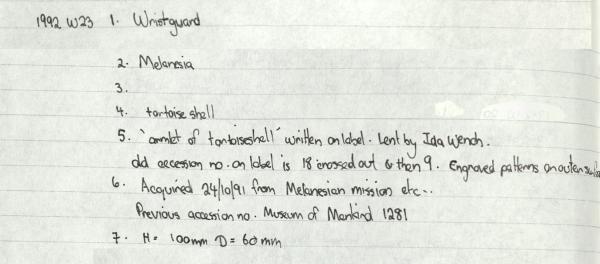 1992 W23 1. Wristguard
2. Melanesia
3.
4. tortoise shell
5. 'armlet of tortoiseshell' written on label. Lent by Ida Wench.
old accession no. on label is 18 crossed out & then 9. Engraved patterns on outer
6. Acquired 24/10/91 from Melanesian mission etc..
Previous accession no. Museum of Mankind 1281
7. H= 100mm D= 60mm